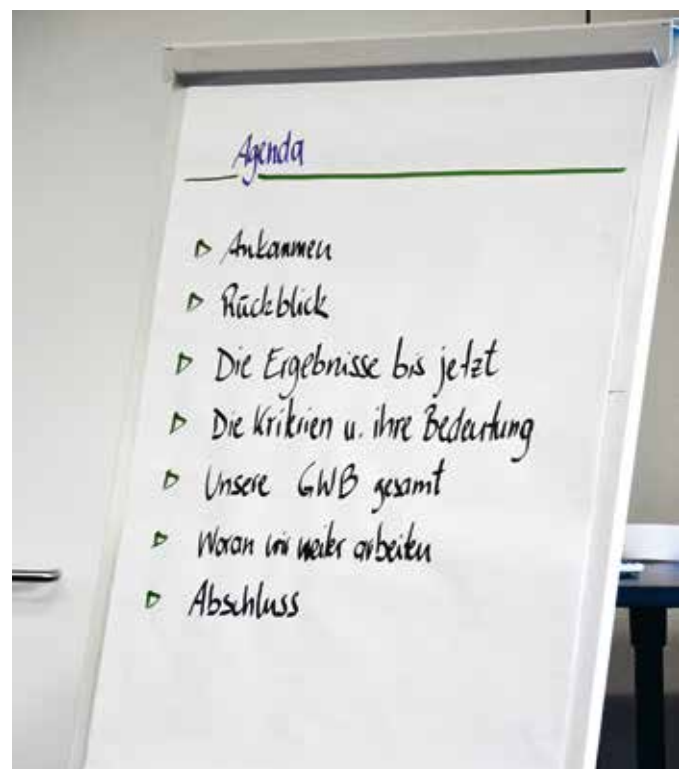 Agenda
Ankommen
Rückblick
Die Ergebnisse bis jetzt
Die Kriterien u. ihre Bedeutung
Unsere GWB gesamt
Woran wir weiter arbeiten
Abschluss